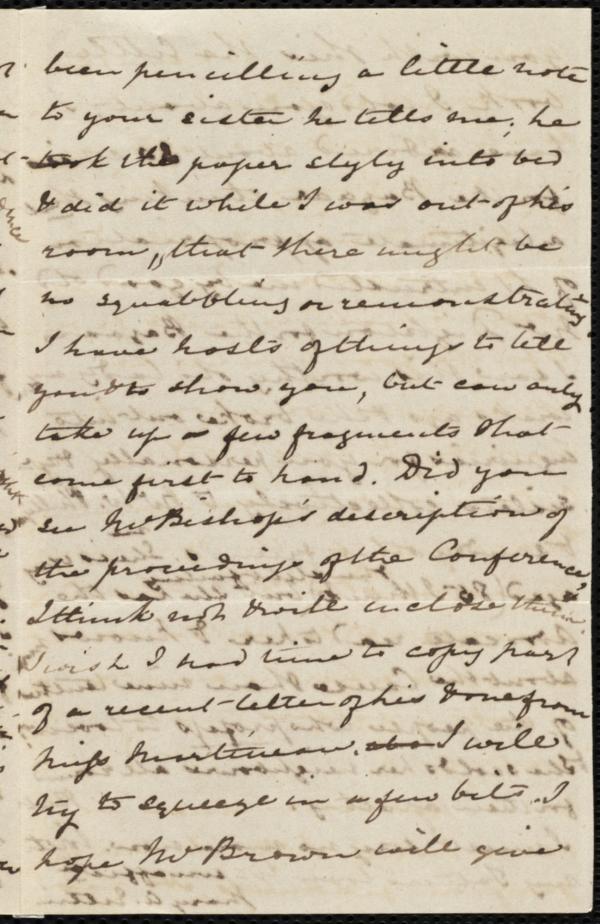 been pencilling a little note
to your sister he tells me; he
took the paper slyly into bed
& did it while I was out of his
room, that there might be
no squabbling or remonstrating.
I have hosts of things to tell
you & to show you, but can only
take up a few fragments that
come first to hand. Did you
see Mr Bishop's description of
the proceedings of the Conference?
I think not & will inclose them.
I wish I had time to copy part
of a recent letter of his & one from
Miss Martineau. I will
try to squeeze in a few bits. I
hope Mr Brown will give